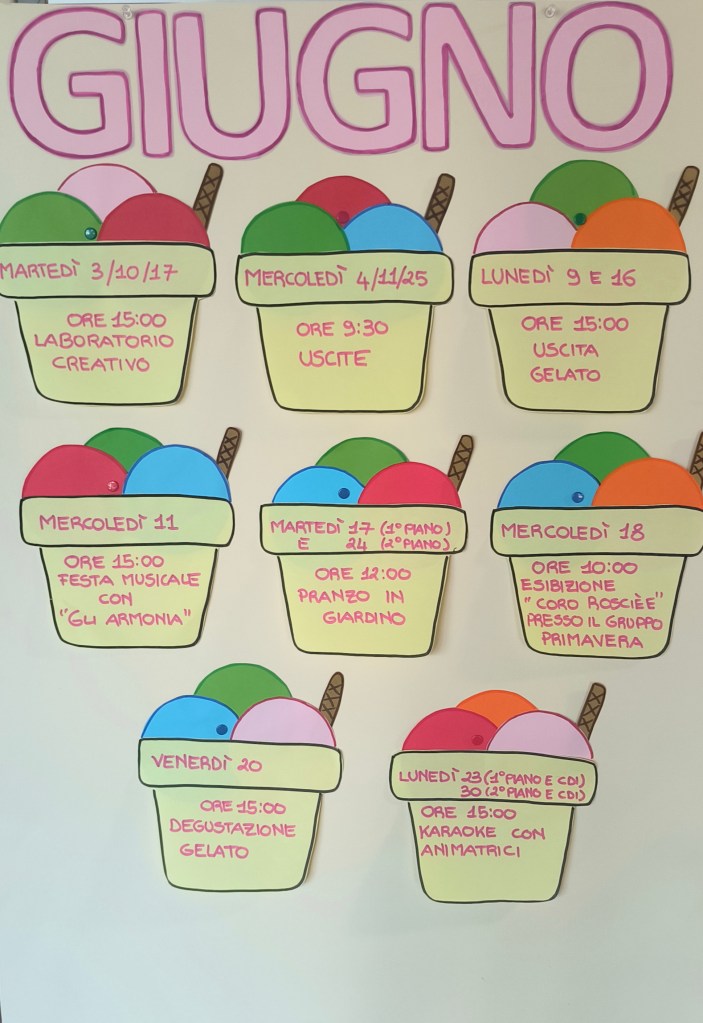 GIUGNO
MARTEDÌ 3/10/17
ORE 15:00
LABORATORIO
CREATIVO
MERCOLEDÌ 4/11/25
ORE 9:30
USCITE
LUNEDÌ 9 E 16
ORE 15:00
USCITA
GELATO
MERCOLEDÌ 11
ORE 15:00
FESTA MUSICALE
CON
"GLI ARMONIA"
MARTEDÌ 17 (1° PIANO)
E 24 (2° PIANO)
ORE 12:00
PRANZO IN
GIARDINO
MERCOLEDÌ 18
ORE 10:00
ESIBIZIONE
"CORO ROSCIÈE"
PRESSO IL GRUPPO
PRIMAVERA
VENERDÌ 20
ORE 15:00
DEGUSTAZIONE
GELATO
LUNEDÌ 23 (1° PIANO E CDI)
30 (2° PIANO E CDI)
ORE 15:00
KARAOKE CON
ANIMATRICI